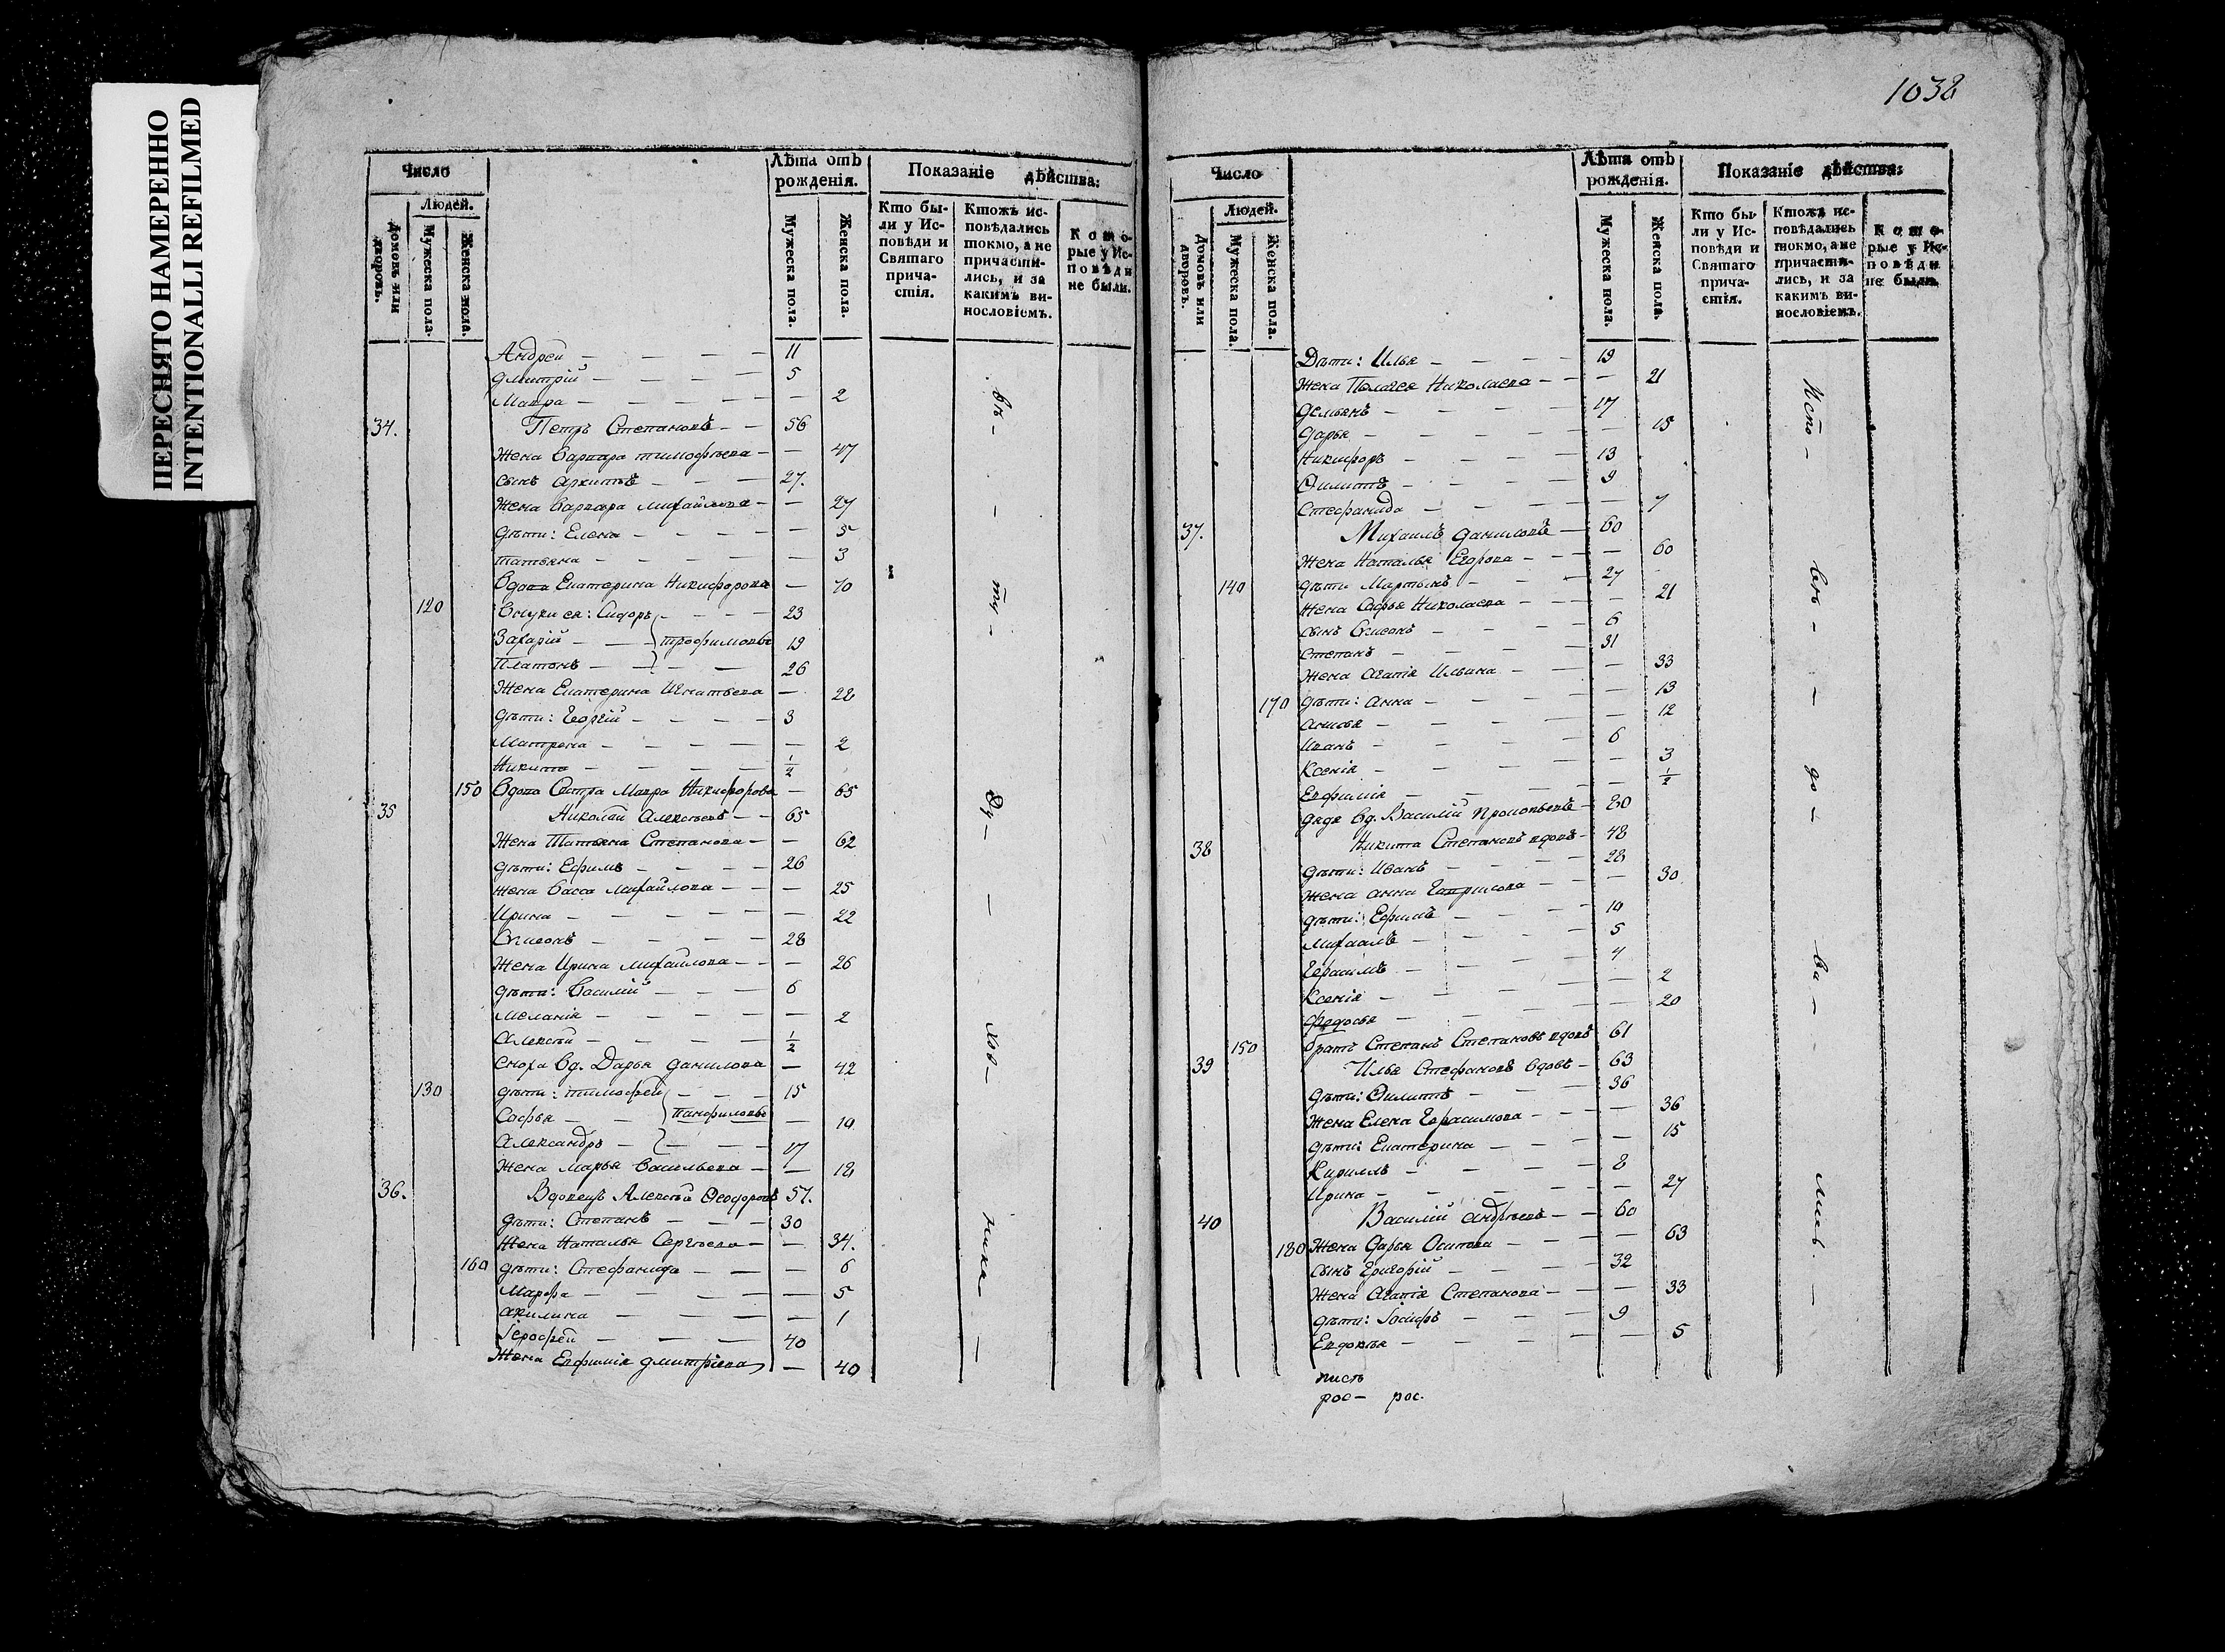 ПЕРЕСНЯТО НАМЕРЕННО
INTENTIONALLI REFILMED
1038
Число
Людей.
Домовъ или дворовъ.
Мужеска пола.
Женска пола.
Лѣта отъ рожденія.
Мужеска пола.
Женска пола.
Показаніе дѣйства:
Кто были у Исповѣди и Святаго причастія.
Ктожъ исповѣдались токмо, а не причастились, и за какимъ винословіемъ.
Которые у Исповѣди не были.
Андрей — 11
Дмитрій — 5
Мавра — 2
34. Петръ Степановъ — 56
Жена Варвара Тимофѣева — 47
Сынъ Архипъ — 27.
Жена Варвара Михайлова — 27
Дѣти: Елена — 5
Татьяна — 3
Вдова Екатерина Никифорова — 70
120 Внуки ея: Сидоръ — 23
Захарій — Трофимовы 19
Платонъ — 26
Жена Екатерина Игнатьева — 28
Дѣти: Георгій — 3
Матрона — 2
Никита — 1/2
150 Вдова Сестра Мавра Никифорова — 65
35 Николай Алексѣевъ — 65
Жена Татьяна Степанова — 62
Дѣти: Ефимъ — 26
Жена Васса Михайлова — 25
Ирина — 22
Симеонъ — 28
Жена Ирина Михайлова — 26
Дѣти: Василій — 6
Меланія — 2
Алексѣй — 1/2
Сноха Вд. Дарья Данилова — 42
130 Дѣти: Тимофей — 15
Софья — Панфиловы — 10
Александръ — 17
Жена Марья Васильева — 18
36. Вдовецъ Алексѣй Ѳеодоровъ 57.
Дѣти: Степанъ — 30
Жена Наталья Сергѣева — 34.
160 Дѣти: Стефанида — 6
Марфа — 5
Акилина — 1
Іерофей — 40
Жена Евфимія Дмитріева — 40
Число
Людей.
Домовъ или дворовъ.
Мужеска пола.
Женска пола.
Лѣта отъ рожденія.
Мужеска пола.
Женска пола.
Показаніе дѣйства:
Кто были у Исповѣди и Святаго причастія.
Ктожъ исповѣдались токмо, а не причастились, и за какимъ винословіемъ.
Которые у Исповѣди не были.
Дѣти: Илья — 19
Жена Пелагея Николаева — 21
Демьянъ — 17
Дарья — 15
Никифоръ — 13
Филиппъ — 9
Стефанида — 7
37. Михаилъ Даниловъ — 60
Жена Наталья Егорова — 60
140 Дѣти Мартынъ — 27
Жена Софья Николаева — 21
Сынъ Симеонъ — 6
Степанъ — 31
Жена Агапія Ильина — 33
170 Дѣти: Анна — 13
Анисья — 12
Иванъ — 6
Ксенія — 3
Евфимія — 1/2
Дядя Вд. Василій Прокопьевъ — 80
38 Никита Степановъ вдовъ — 48
Дѣти: Иванъ — 28
Жена Анна Гаврилова — 30
Дѣти: Ефимъ — 10
Михаилъ — 5
Герасимъ — 4
Ксенія — 2
Федосья — 20
150 Братъ Степанъ Степановъ вдовъ 61
39 Илья Стефановъ Вдовъ — 63
Дѣти: Филиппъ — 36
Жена Елена Герасимова — 36
Дѣти: Екатерина — 15
Кириллъ — 8
Ирина — 27
40 Василій Андрѣевъ — 60
180 Жена Дарья Осипова — 63
Сынъ Григорій — 32
Жена Агапія Степанова — 33
Дѣти: Іосифъ — 9
Евдокія — 5
рос — рос.